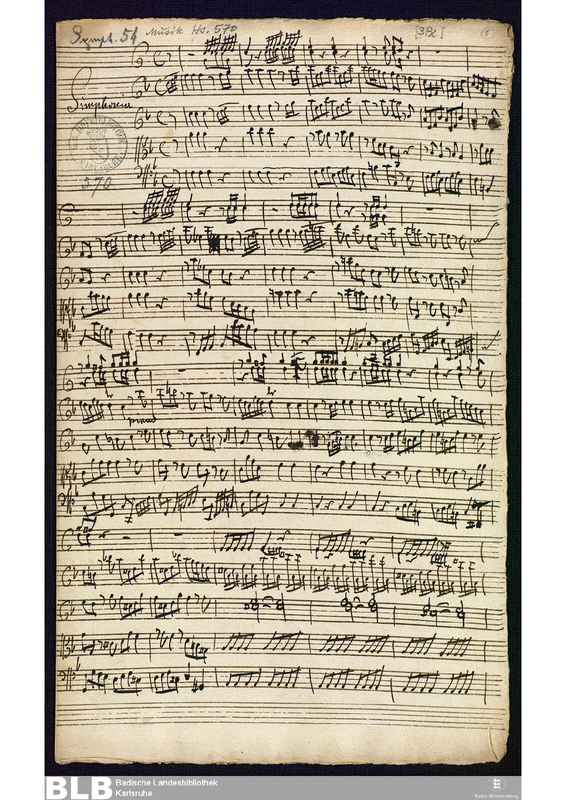 Symph. 54 Musik Hs. 570 [3Bl.] 1
Simphonia
570
piano
BLB Badische Landesbibliothek
Karlsruhe
Baden-Württemberg